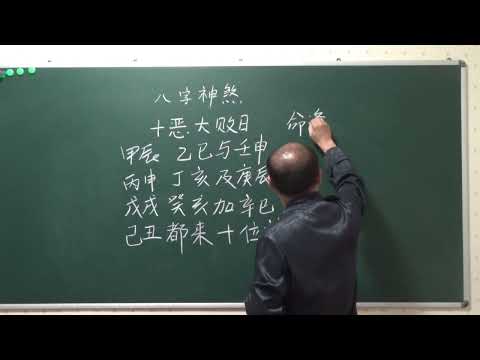 八字神煞
十恶大败日 命逢
甲辰 乙巳与壬申
丙申 丁亥及庚辰
戊戌 癸亥加辛巳
己丑 都来十位